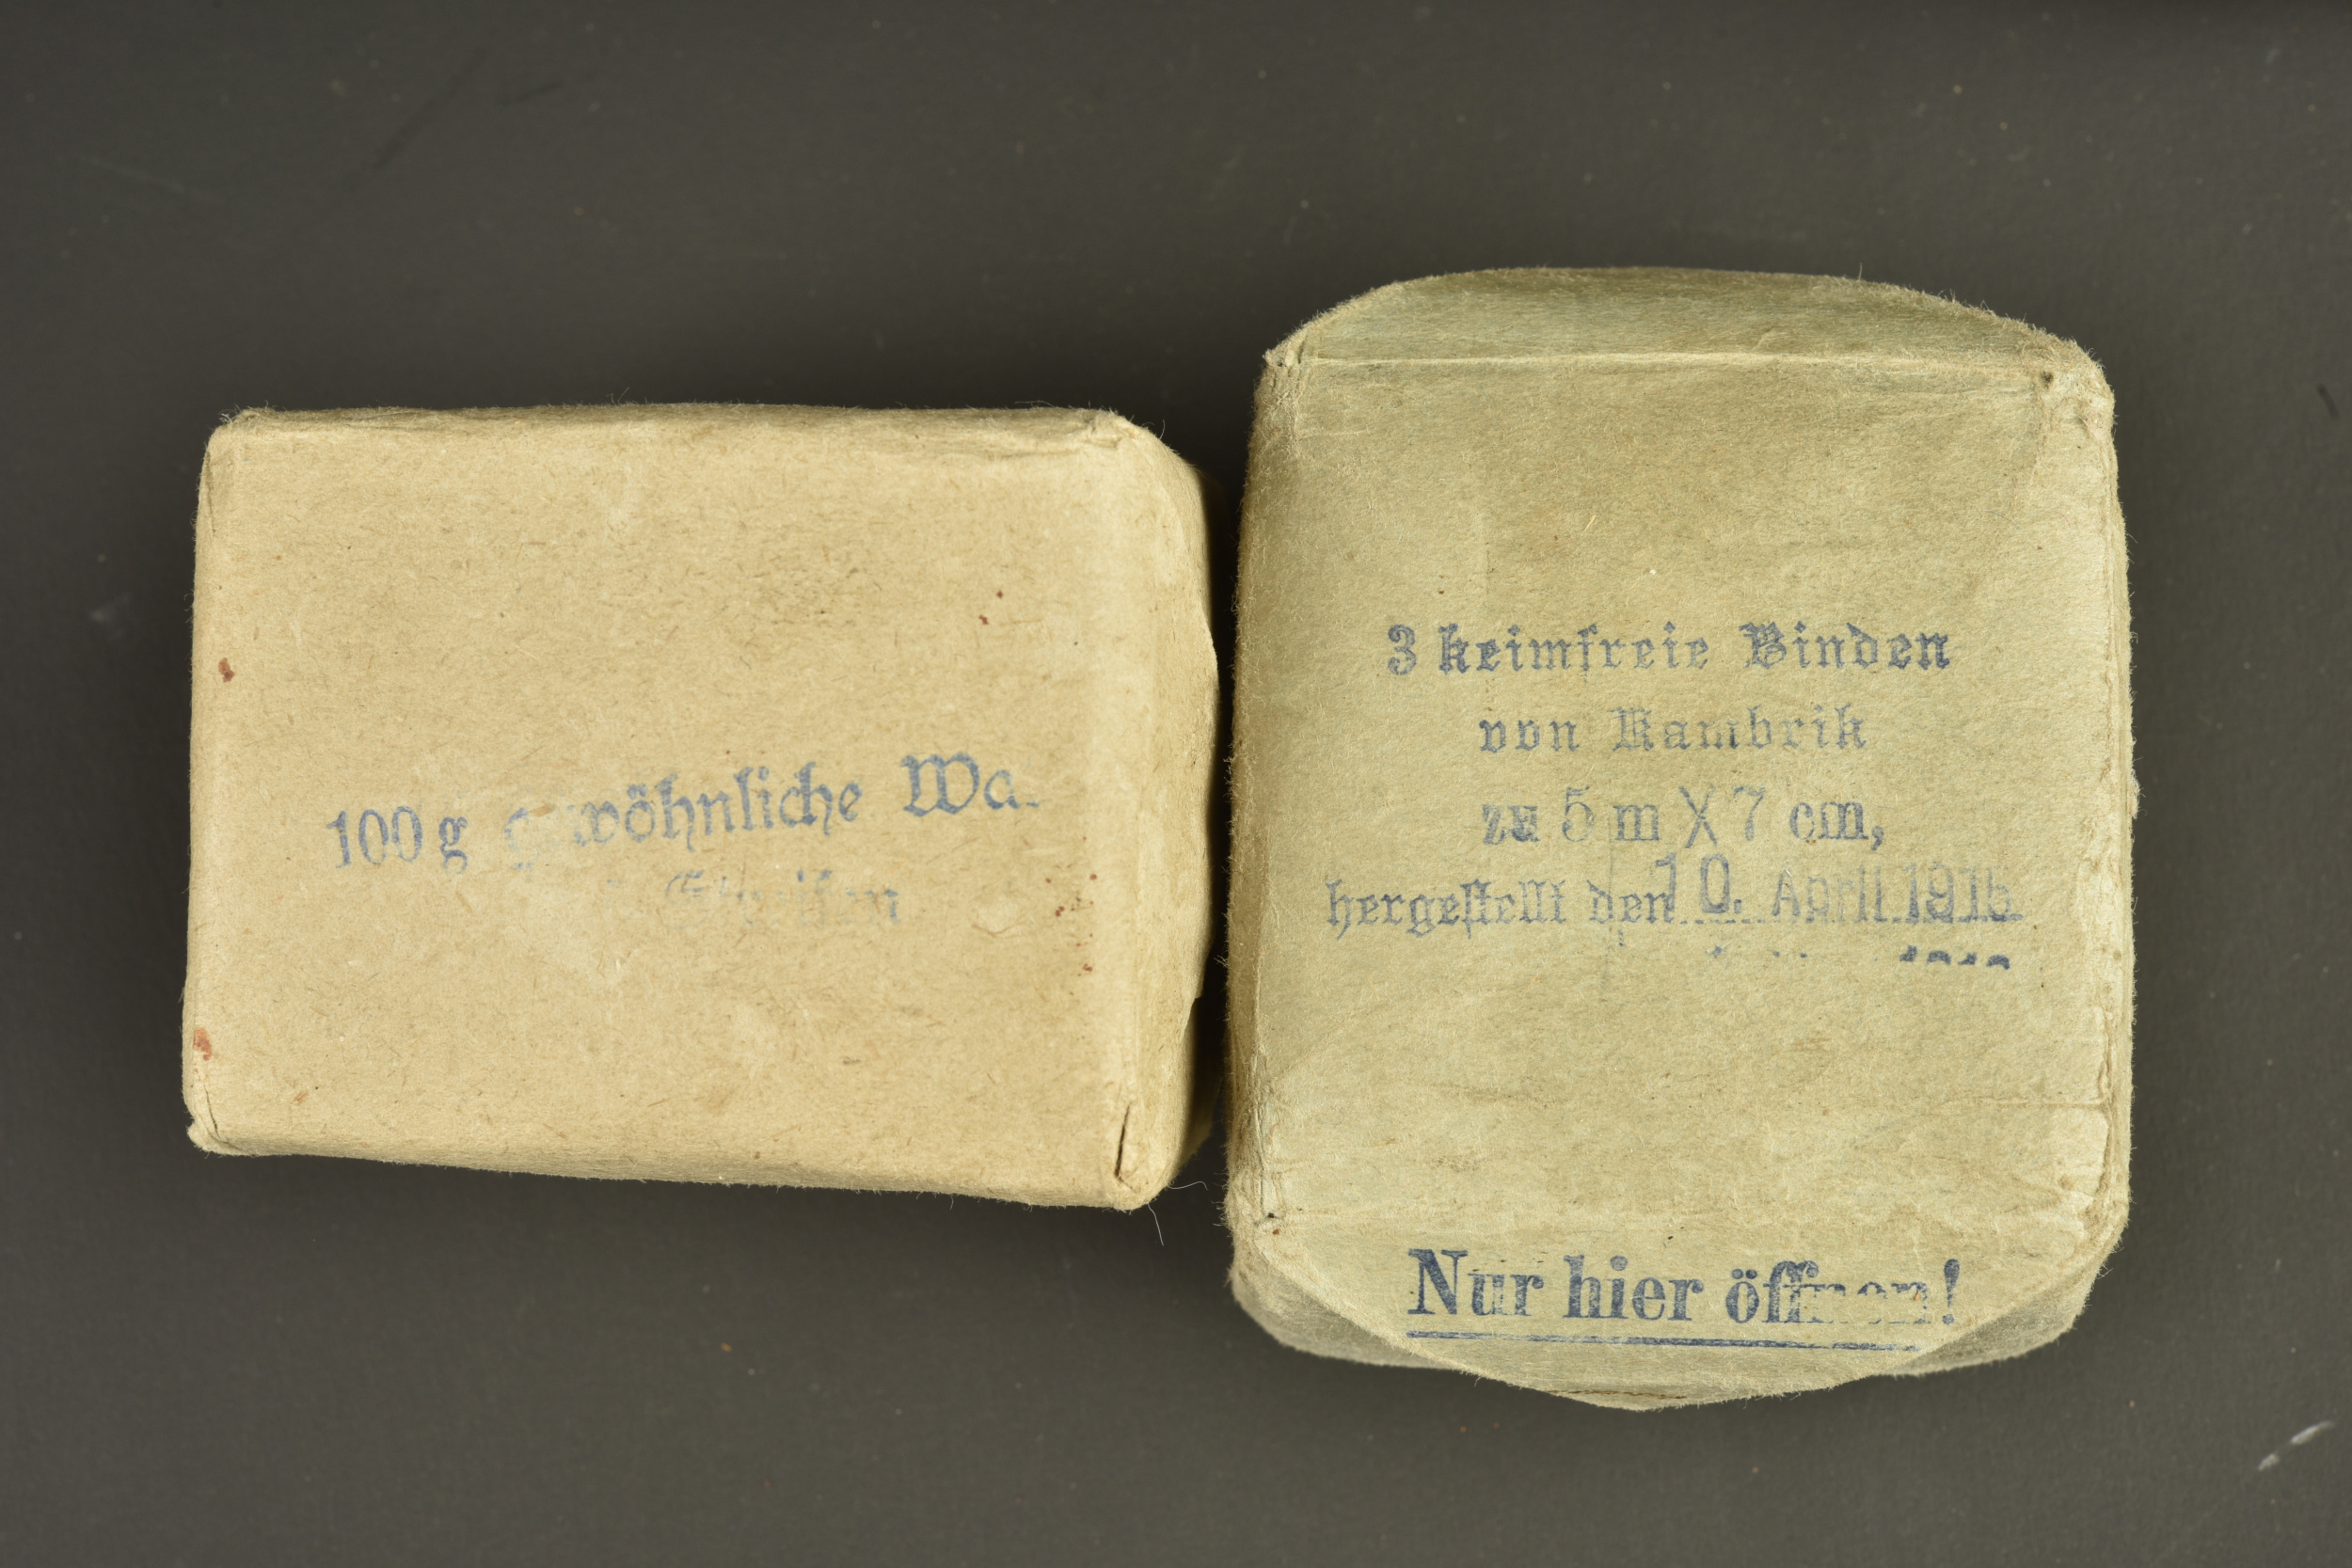 100 g gewöhnliche Wa
3 keimfreie Binden
von Kambrik
zu 5 m X 7 cm,
hergestellt den 10. April 1915
Nur hier öffnen!